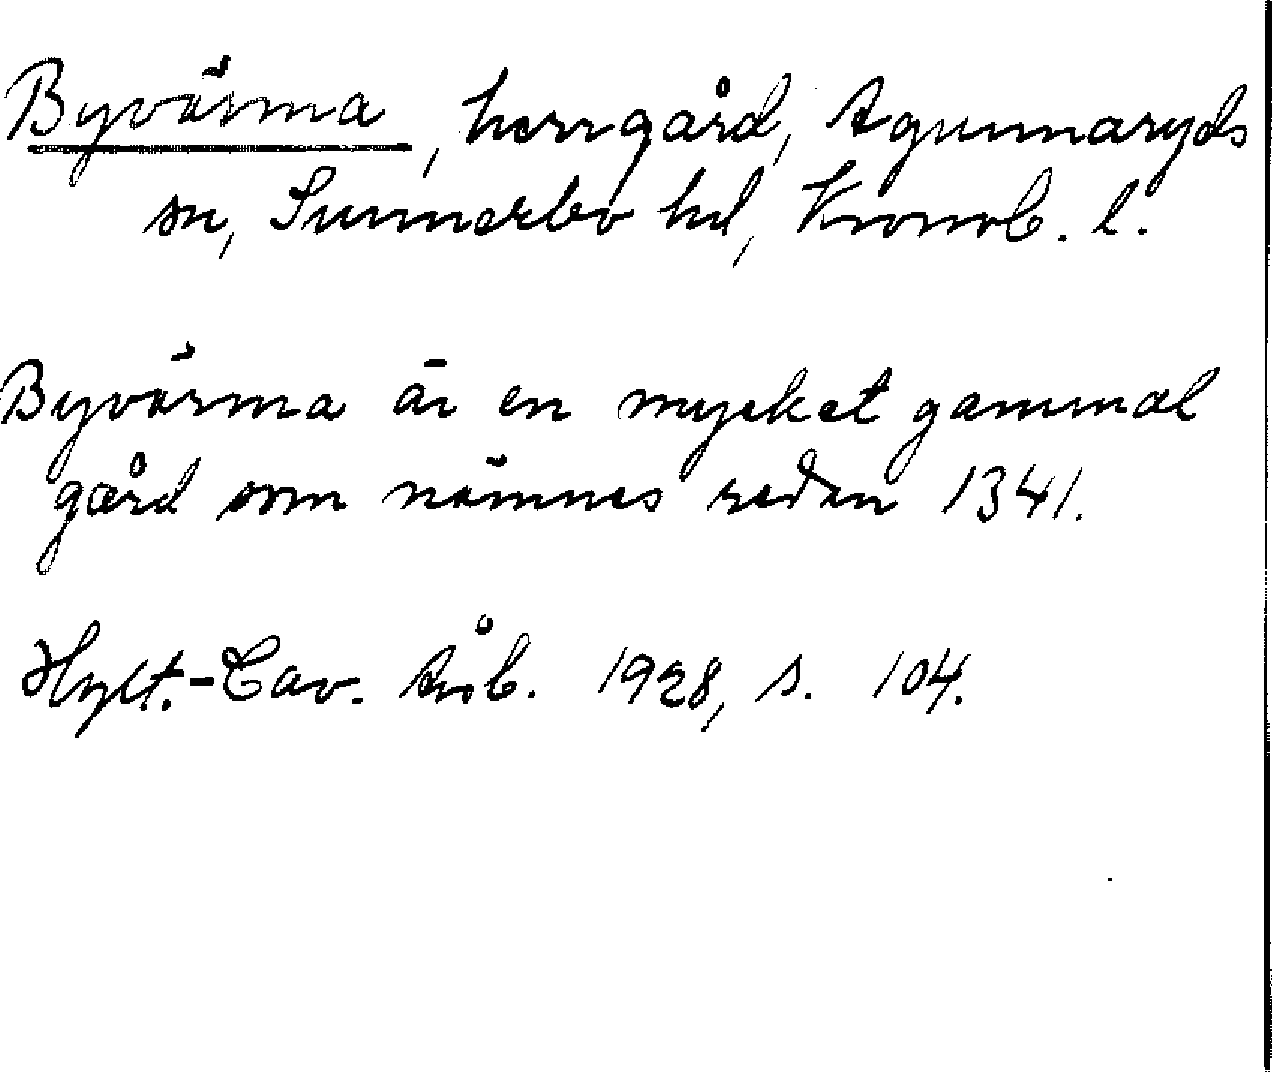 Byvärma, herrgård, Agunnaryds
sn, Sunnerbo hd, Kronob. l.
Byvärma är en mycket gammal
gård som nämnes redan 1341.
Hylt.-Cav. Årsb. 1928, s. 104.